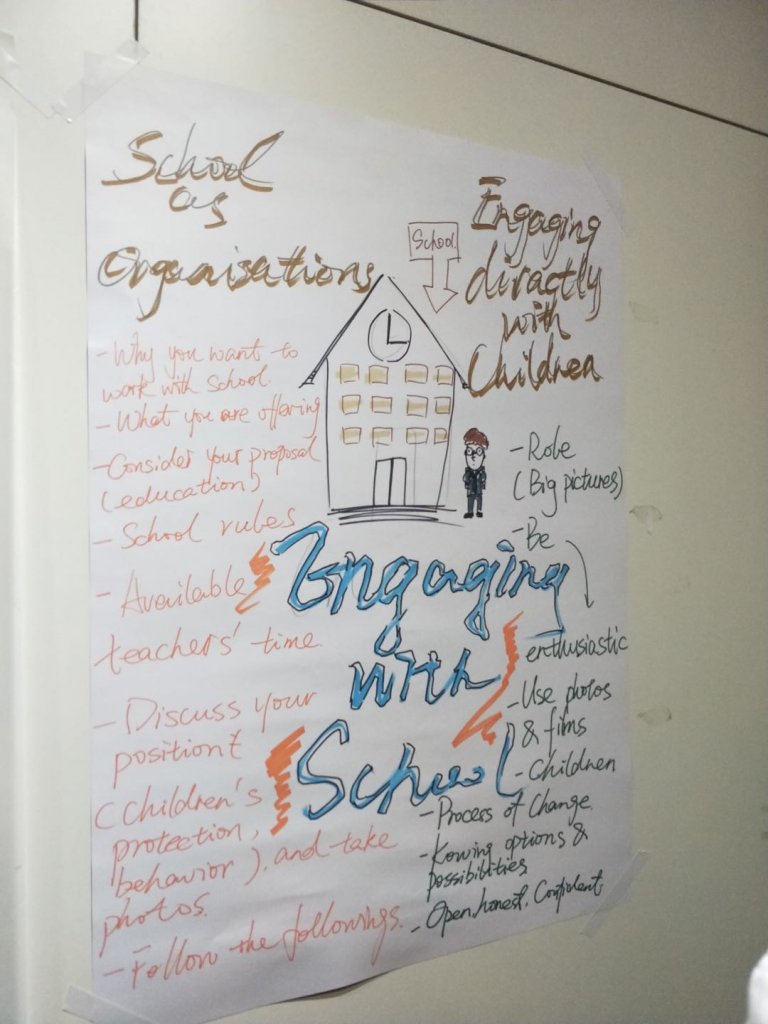 School
as
Organisations
- Why you want to
work with school.
- What you are offering
- Consider your proposal
(education)
- School rules
- Available
teachers' time.
- Discuss your
position
(children's
protection,
behavior). and take
photos.
- Follow the followings.
School
Engaging
with
School
Engaging
directly
with
Children
- Role
(Big pictures)
- Be
enthusiastic
- Use photos
& films
- Children
- Process of Change.
- Kowing options &
possibilities
- Open, honest, Confident